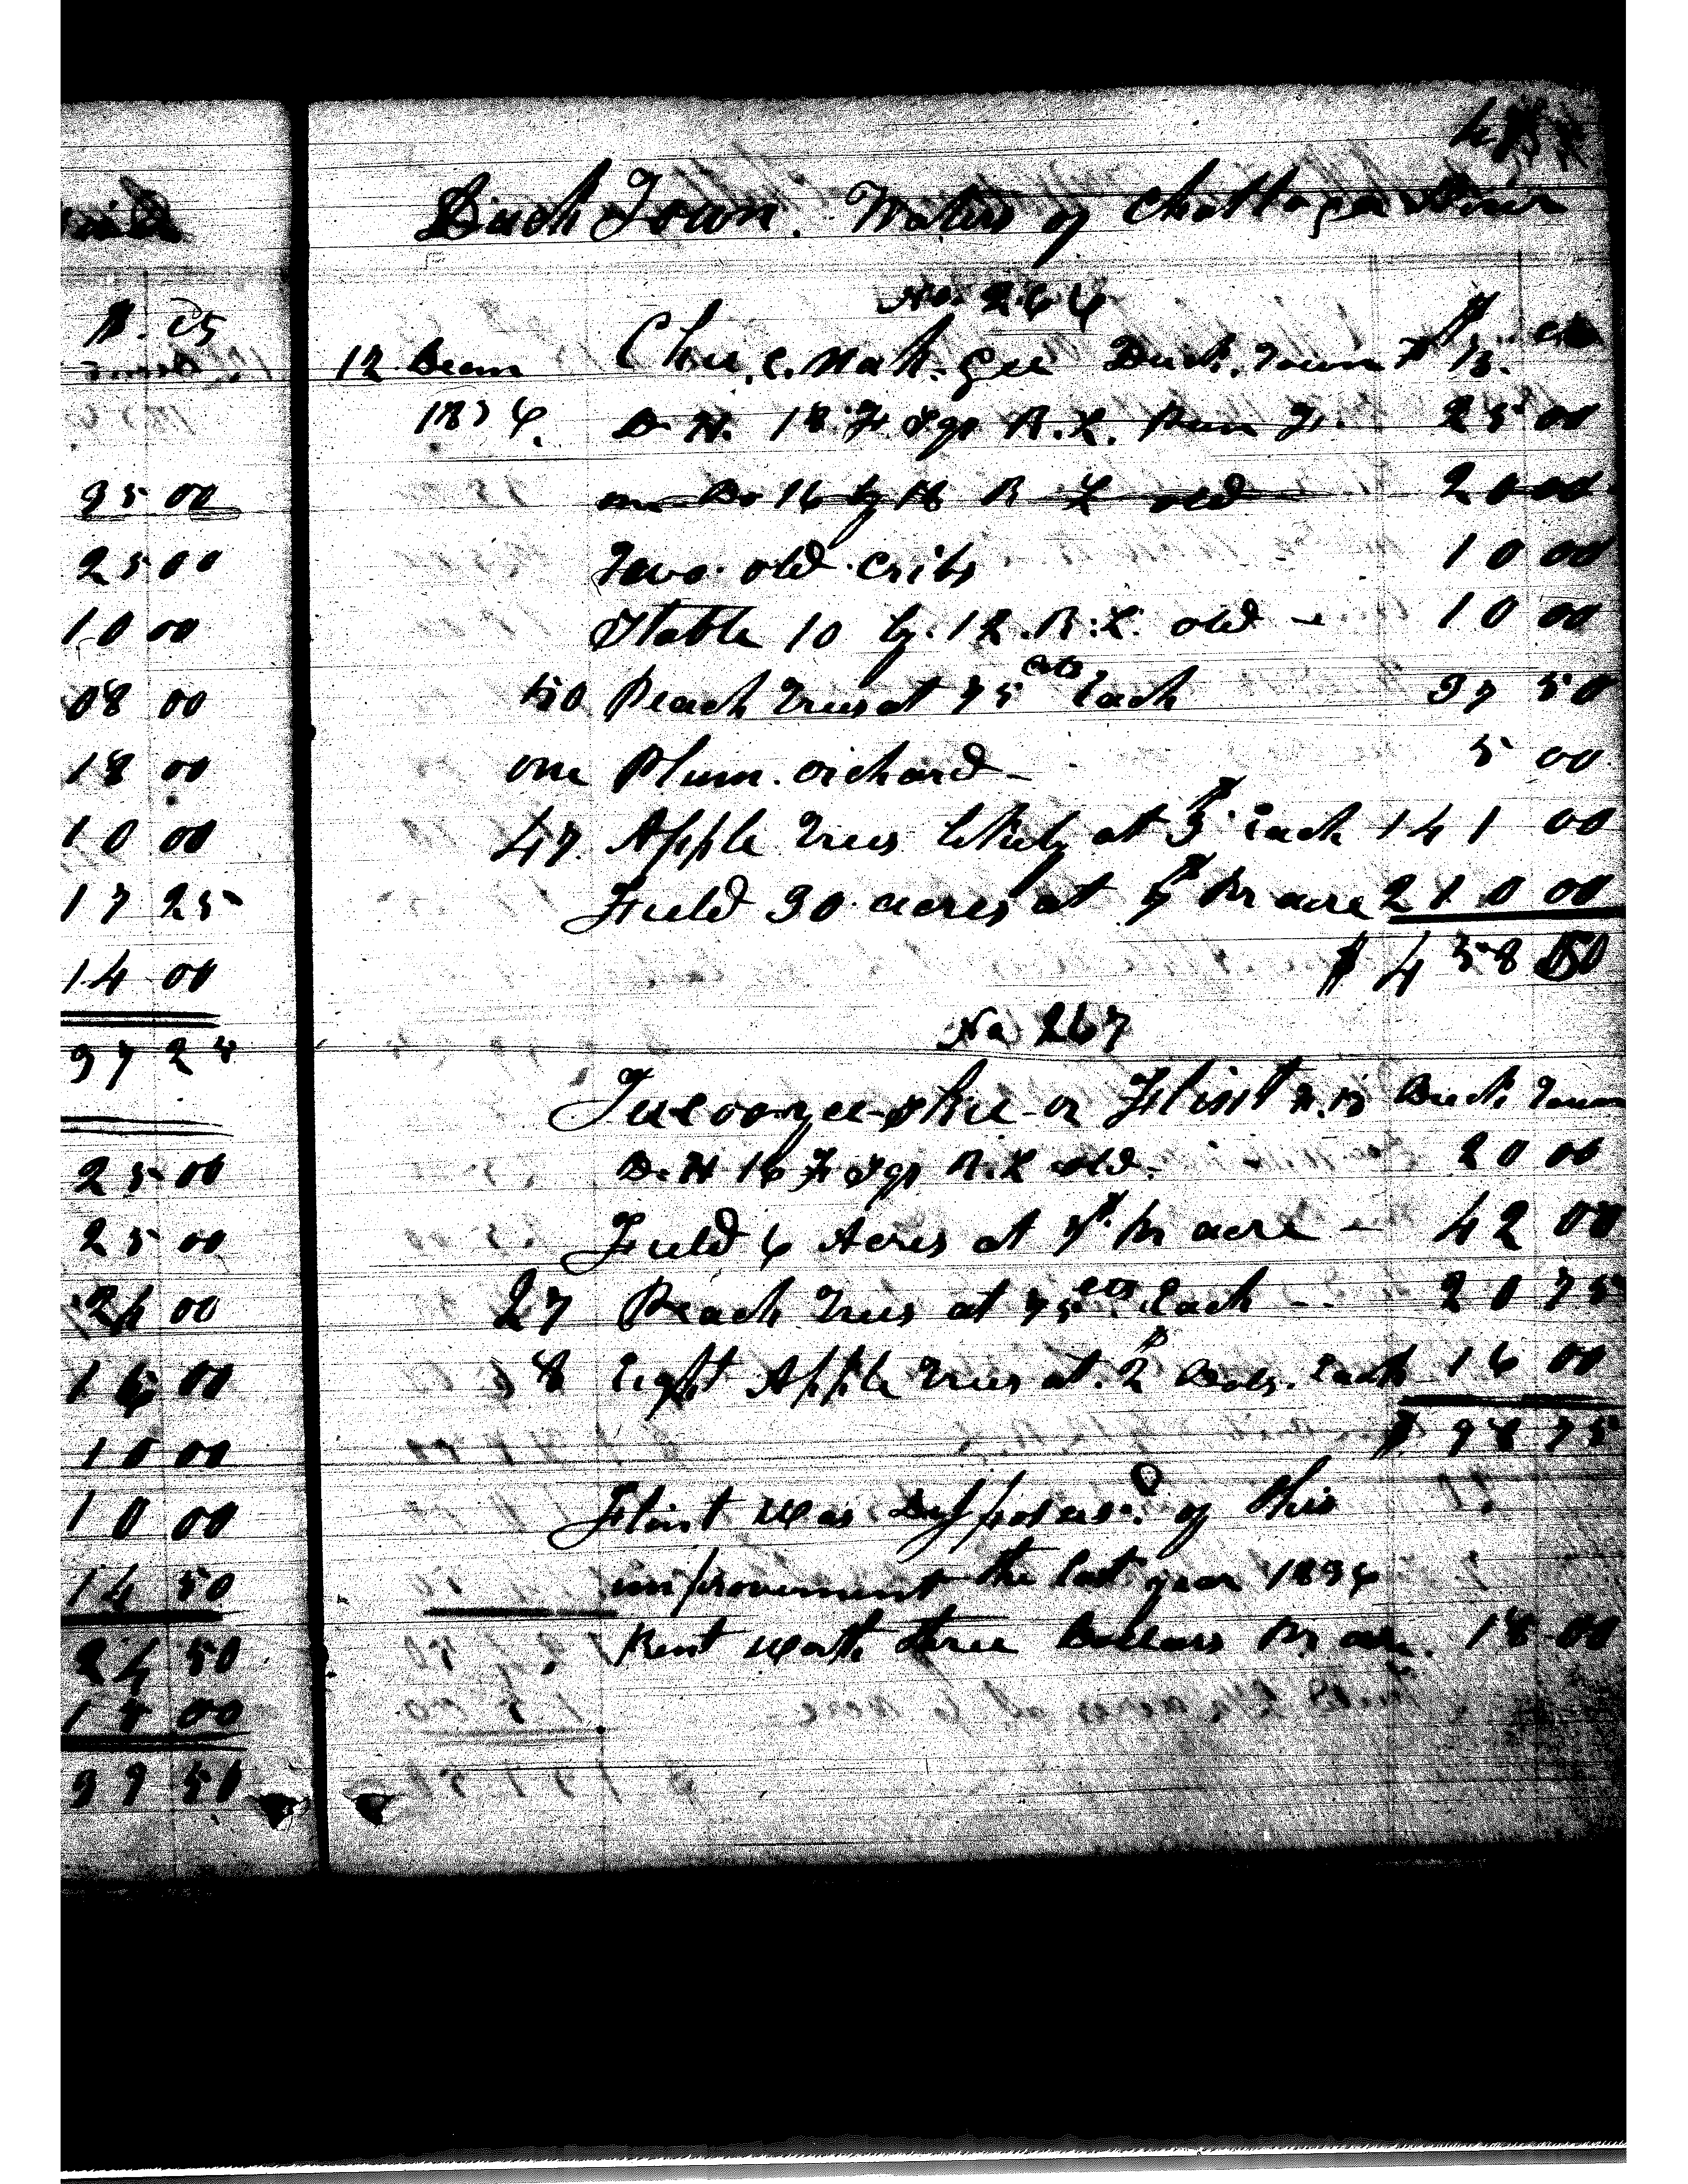 Duck Town. Waters of Chattooga River
No. 266
$ cts
12 Decem Chu,e.nah.gee Duck. Town
1836. D H. 18 Ft Sqr R.L. Pun Fr. 25 00
one Do 16 by 16 R L old 20 00
Two old cribs 10 00
Stable 10 by 12 R.L. old - 10 00
50 Peach Trees at 75 cts Each 37 50
one Plum orchard - 5 00
47 Apple Trees likely at 3 $ Each 141 00
Field 30 acres at 7 $ Pr acre 210 00
$ 458 50
No 267
or Flint Duck Town
D. H 16 Ft Sqr R.L old. 20 00
Field 6 Acres at 7 $ Pr acre - 42 00
27 Peach Trees at 75 cts Each - - 20 75
8 Eight Apple Trees at 2 $ Each 16 00
$ 98 75
Flint was Disposesd of this
improvement the last year 1836
Rent worth three Dollars Pr acre. 18 00
$. cts
35 00
25 00
10 00
08 00
18 00
10 00
17 25
14 00
37 24
25 00
25 00
24 00
16 00
10 00
10 00
14 50
24 50
39 50